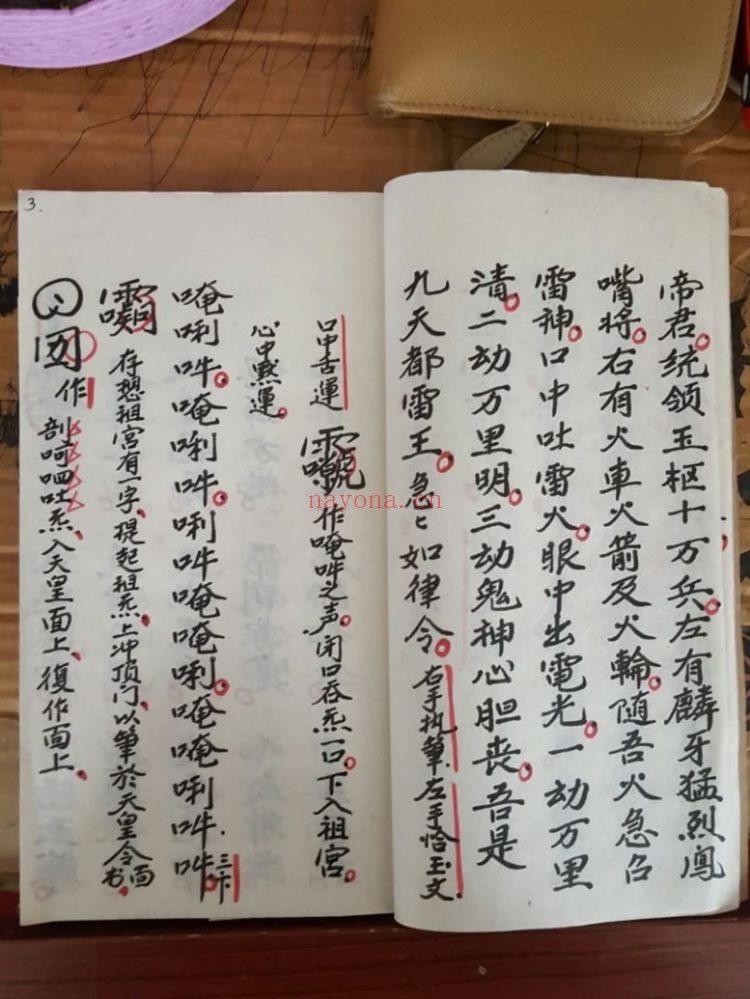 帝君。统领玉枢十万兵。左有麟牙猛烈鳳
嘴将。右有火車火箭及火輪。随吾火急召
雷神。口中吐雷火。眼中出電光。一动万里
清。二动万里明。三动鬼神心胆丧。吾是
九天都雷王。急々如律令。右手执筆、左手恰玉文、
口中舌運
心中默運。
作唵吽之声。闭口吞炁一口。下入祖宮。
唵唎吽。唵唎吽。唎吽唵唵唎。唵唵唎吽.吽。三卞
存想祖宮有一字、提起祖炁、上冲顶门、以筆於天皇令面书、
作
剖㖿呬吐炁、入天皇面上、復作面上、
3.
nayona.cn